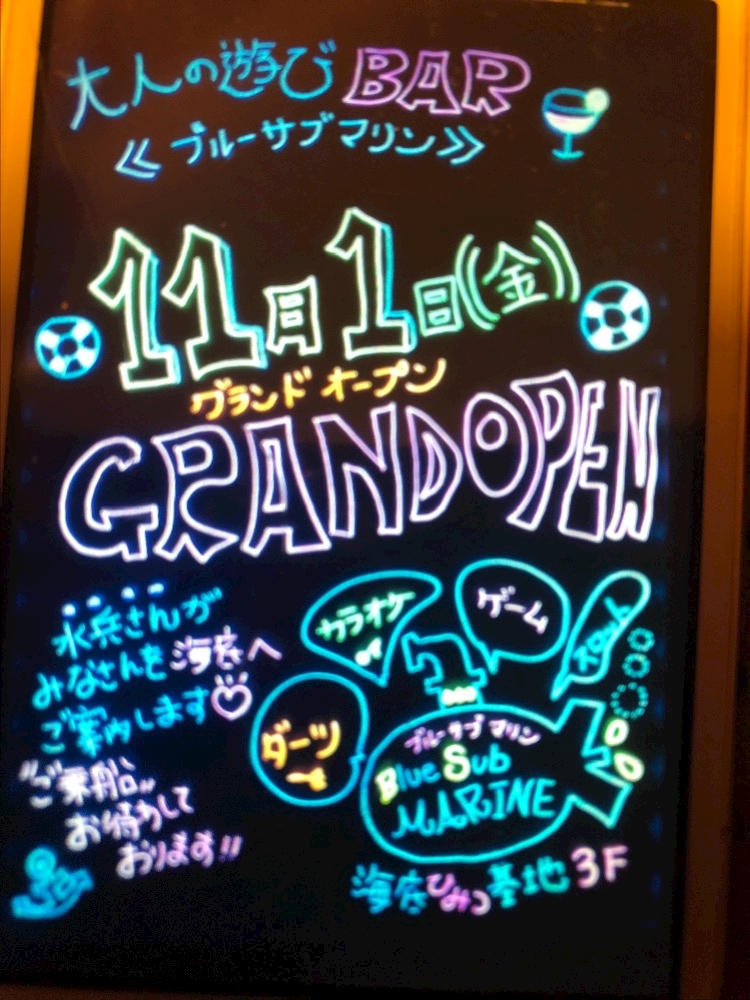 大人の遊び BAR
≪ブルーサブマリン≫
11月1日(金)
グランド オープン
GRAND OPEN
水兵さんが
みなさんを海底へ
ご案内します♡
"ご乗船"
お待ちして
おります!!
カラオケ
ゲーム
スロット
ダーツ
ブルーサブマリン
Blue Sub
MARINE
海底ひみつ基地3F